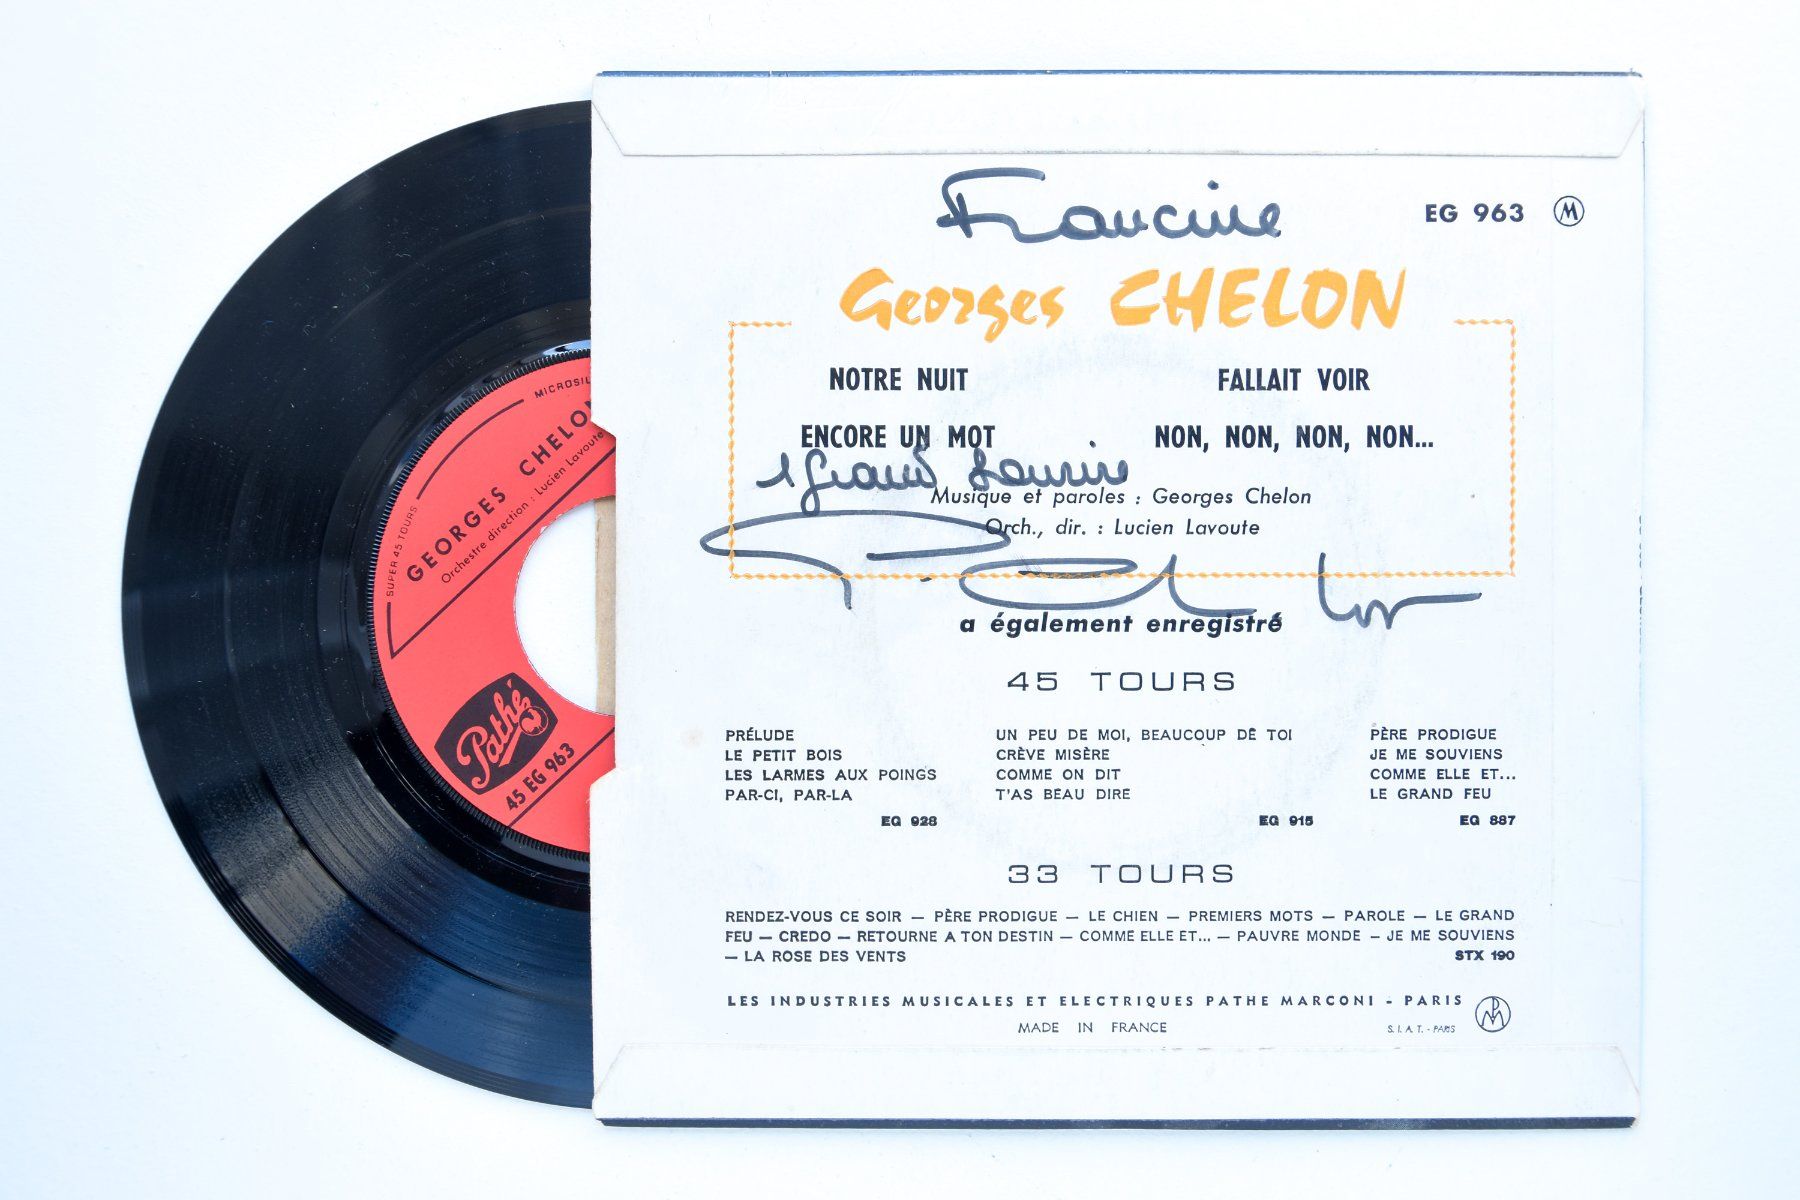 MICROSIL
SUPER 45 TOURS
GEORGES CHELON
Orchestre direction : Lucien Lavoute
Pathé
45 EG 963
Francine
EG 963 M
Georges CHELON
NOTRE NUIT
FALLAIT VOIR
ENCORE UN MOT
NON, NON, NON, NON...
1 grand sourire
Musique et paroles : Georges Chelon
Orch., dir. : Lucien Lavoute
a également enregistré
45 TOURS
PRÉLUDE
LE PETIT BOIS
LES LARMES AUX POINGS
PAR-CI, PAR-LA
EG 928
UN PEU DE MOI, BEAUCOUP DE TOI
CRÈVE MISÈRE
COMME ON DIT
T'AS BEAU DIRE
EG 915
PÈRE PRODIGUE
JE ME SOUVIENS
COMME ELLE ET...
LE GRAND FEU
EG 887
33 TOURS
RENDEZ-VOUS CE SOIR — PÈRE PRODIGUE — LE CHIEN — PREMIERS MOTS — PAROLE — LE GRAND
FEU — CREDO — RETOURNE A TON DESTIN — COMME ELLE ET... — PAUVRE MONDE — JE ME SOUVIENS
— LA ROSE DES VENTS STX 190
LES INDUSTRIES MUSICALES ET ELECTRIQUES PATHE MARCONI - PARIS
MADE IN FRANCE
S.I.A.T. - PARIS